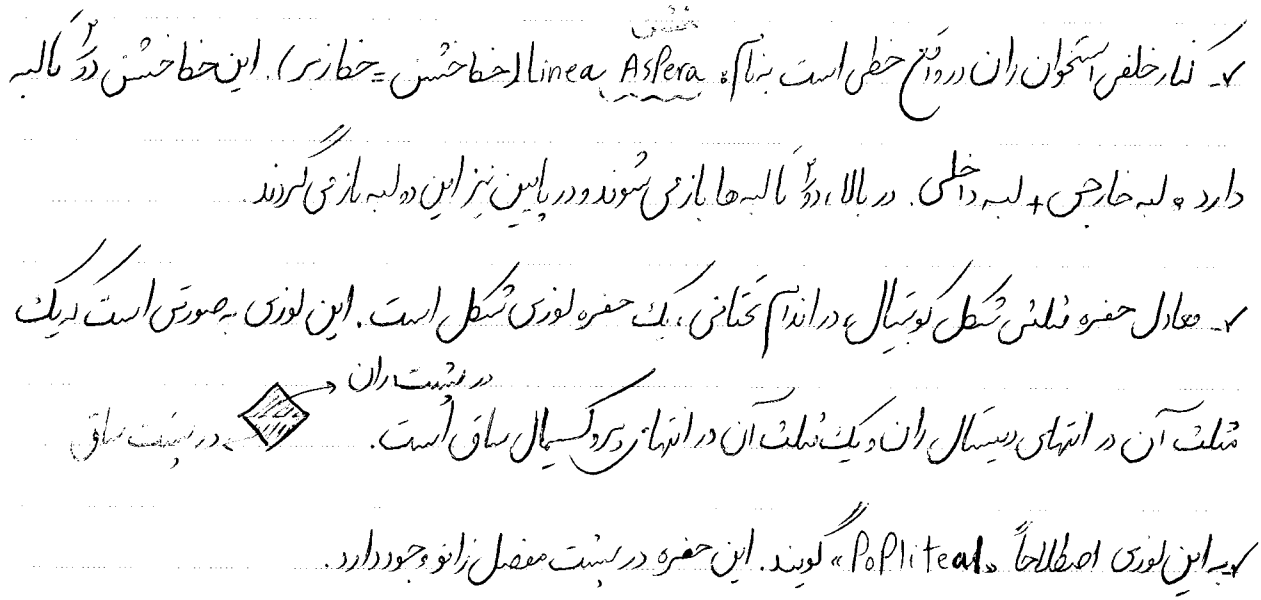 خشن
✓ـ کنار خلفی استخوان ران در واقع خطی است به نام: Linea Aspera (خط خشن = خط زبر). این خط خشن دو ۲ تا لبه
دارد: لبه خارجی + لبه داخلی. در بالا، دو ۲ تا لبه‌ها باز می شوند و در پایین نیز این دو لبه باز می گردند.
✓ـ معادل حفره مثلثی شکل کوبیتال، در اندام تحتانی، یک حفره لوزی شکل است. این لوزی به صورتی است که یک
در پشت ران
مثلث آن در انتهای دیستال ران و یک مثلث آن در انتهای پروگسیمال ساق است. در پشت ساق
✓ـ به این لوزی اصطلاحاً «PoPliteal» گویند. این حفره در پشت مفصل زانو وجود دارد.